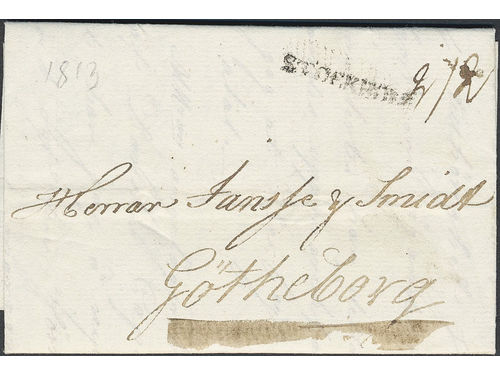 1813
STOCKHOLM
Herrar Jansse y Smidt
Götheborg